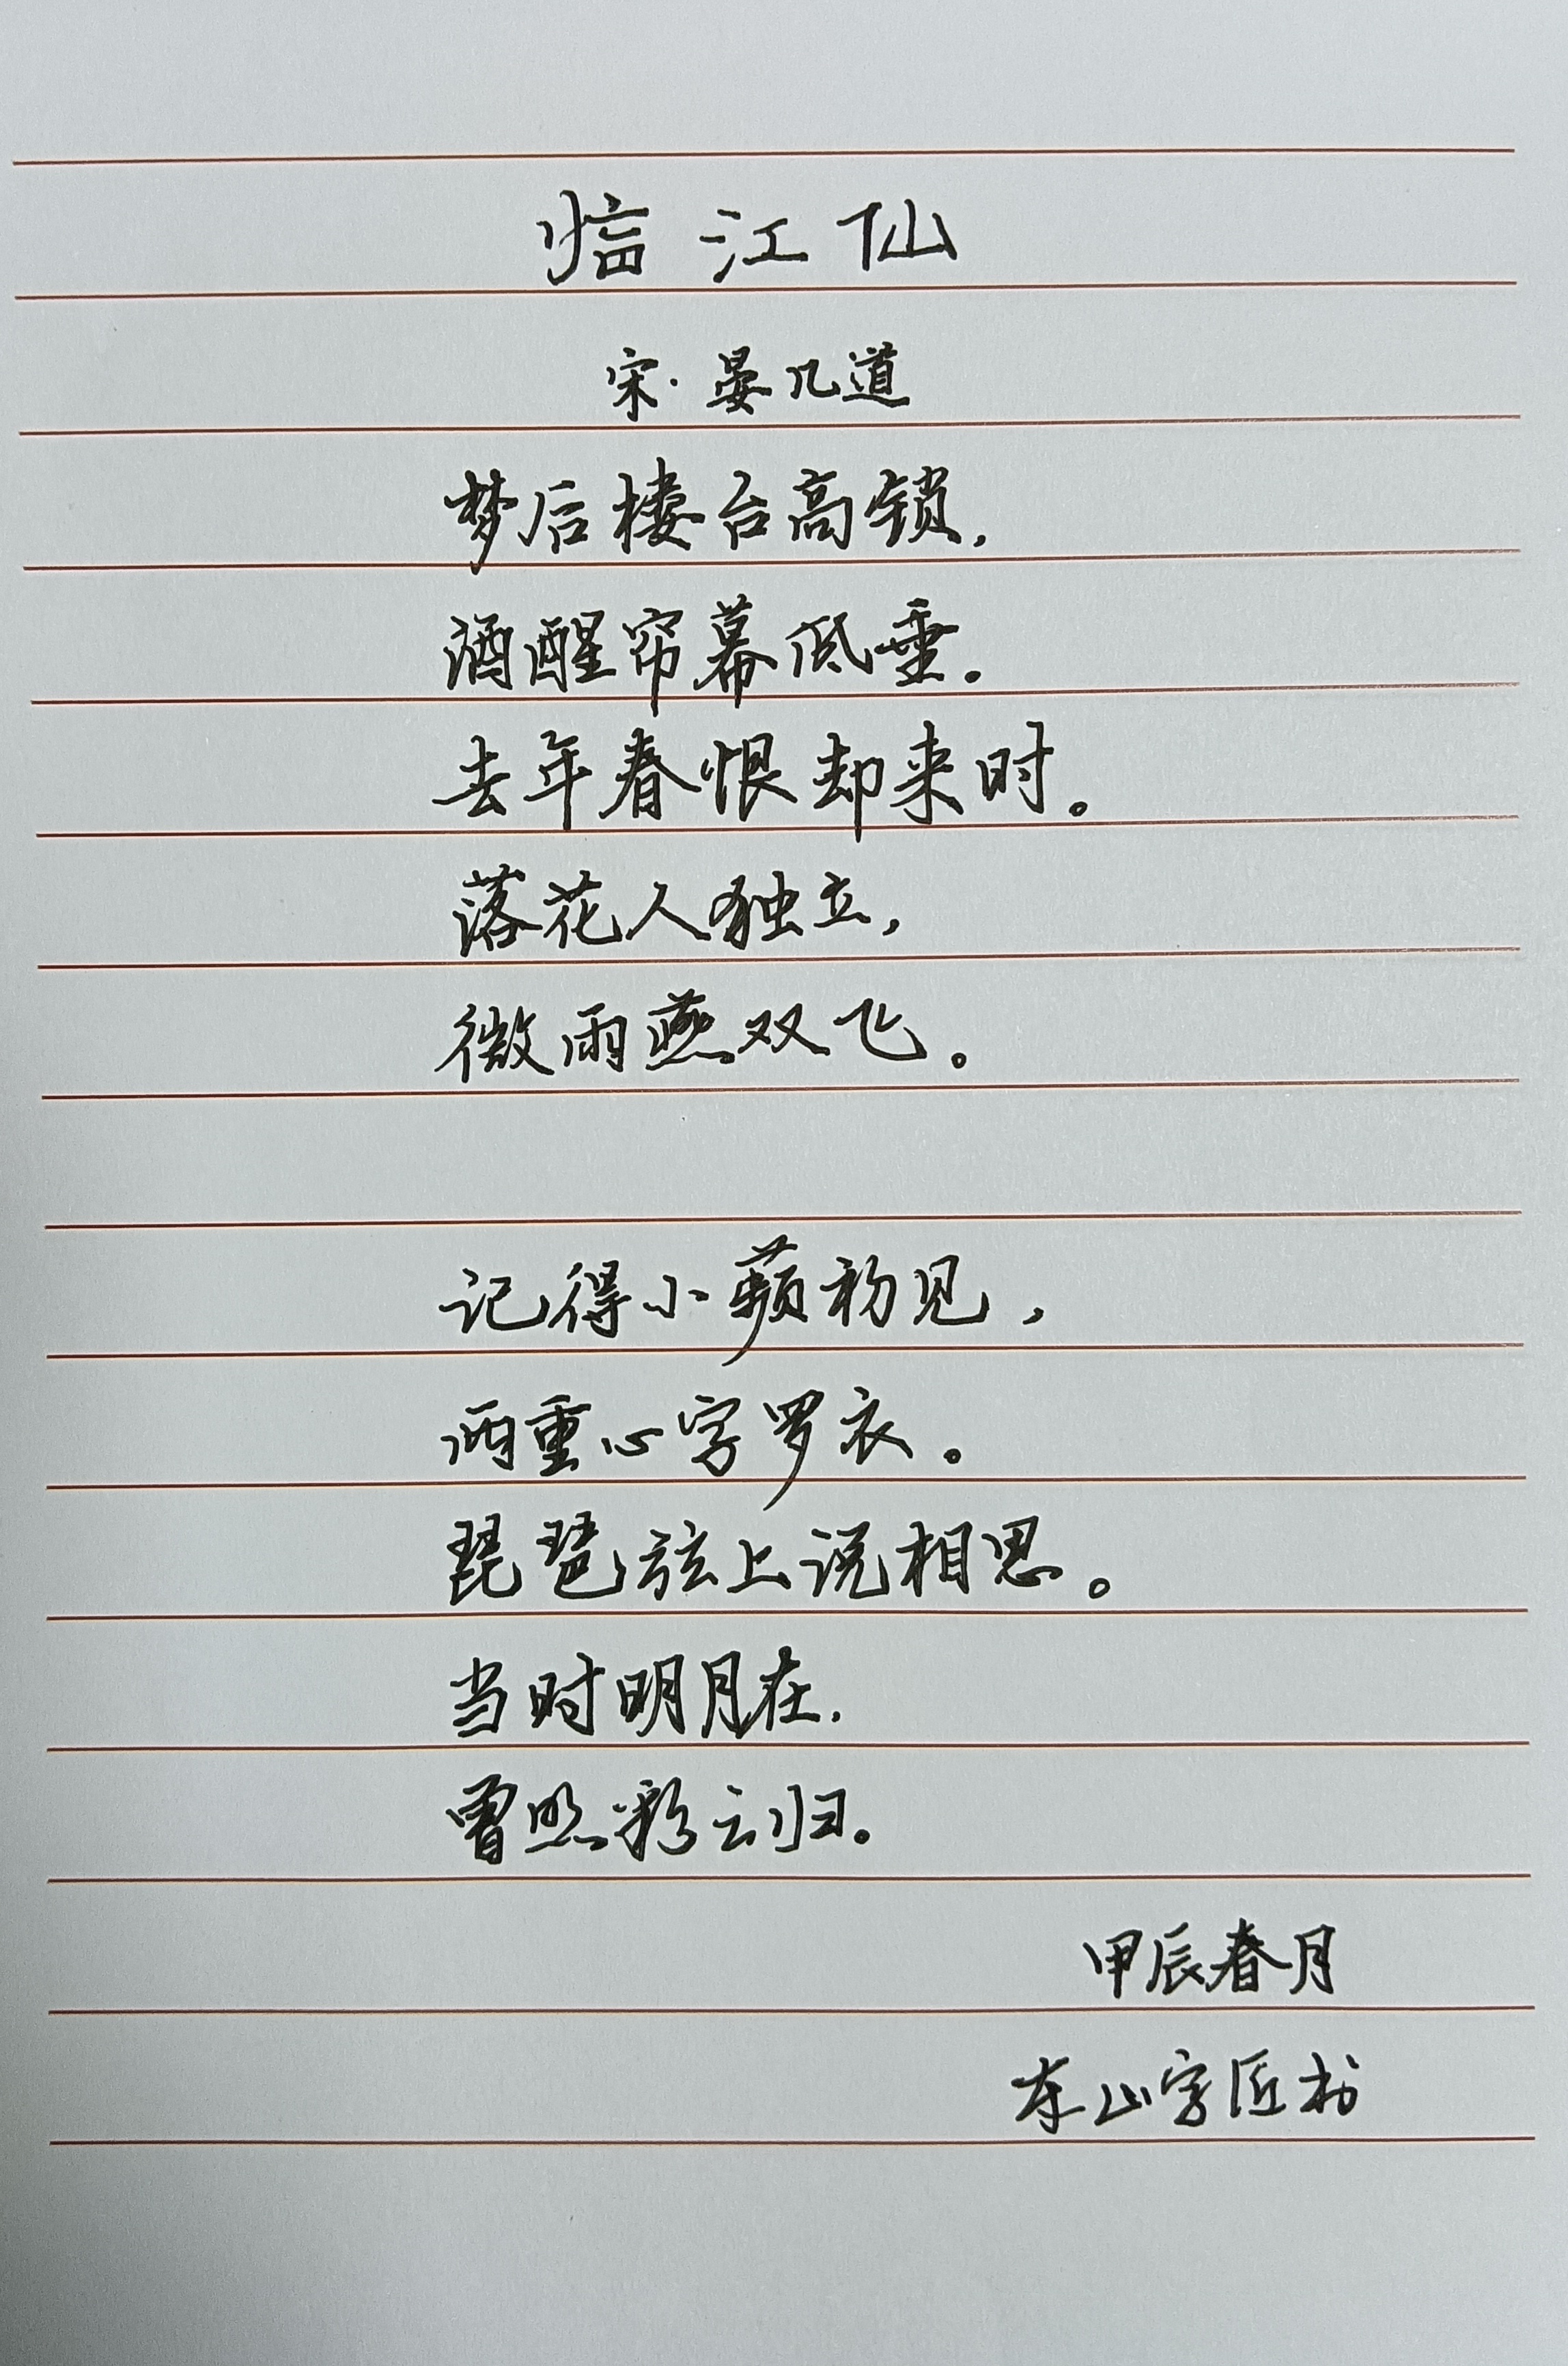 临江仙
宋·晏几道
梦后楼台高锁,
酒醒帘幕低垂。
去年春恨却来时。
落花人独立,
微雨燕双飞。
记得小蘋初见,
两重心字罗衣。
琵琶弦上说相思。
当时明月在,
曾照彩云归。
甲辰春月
东山字匠书